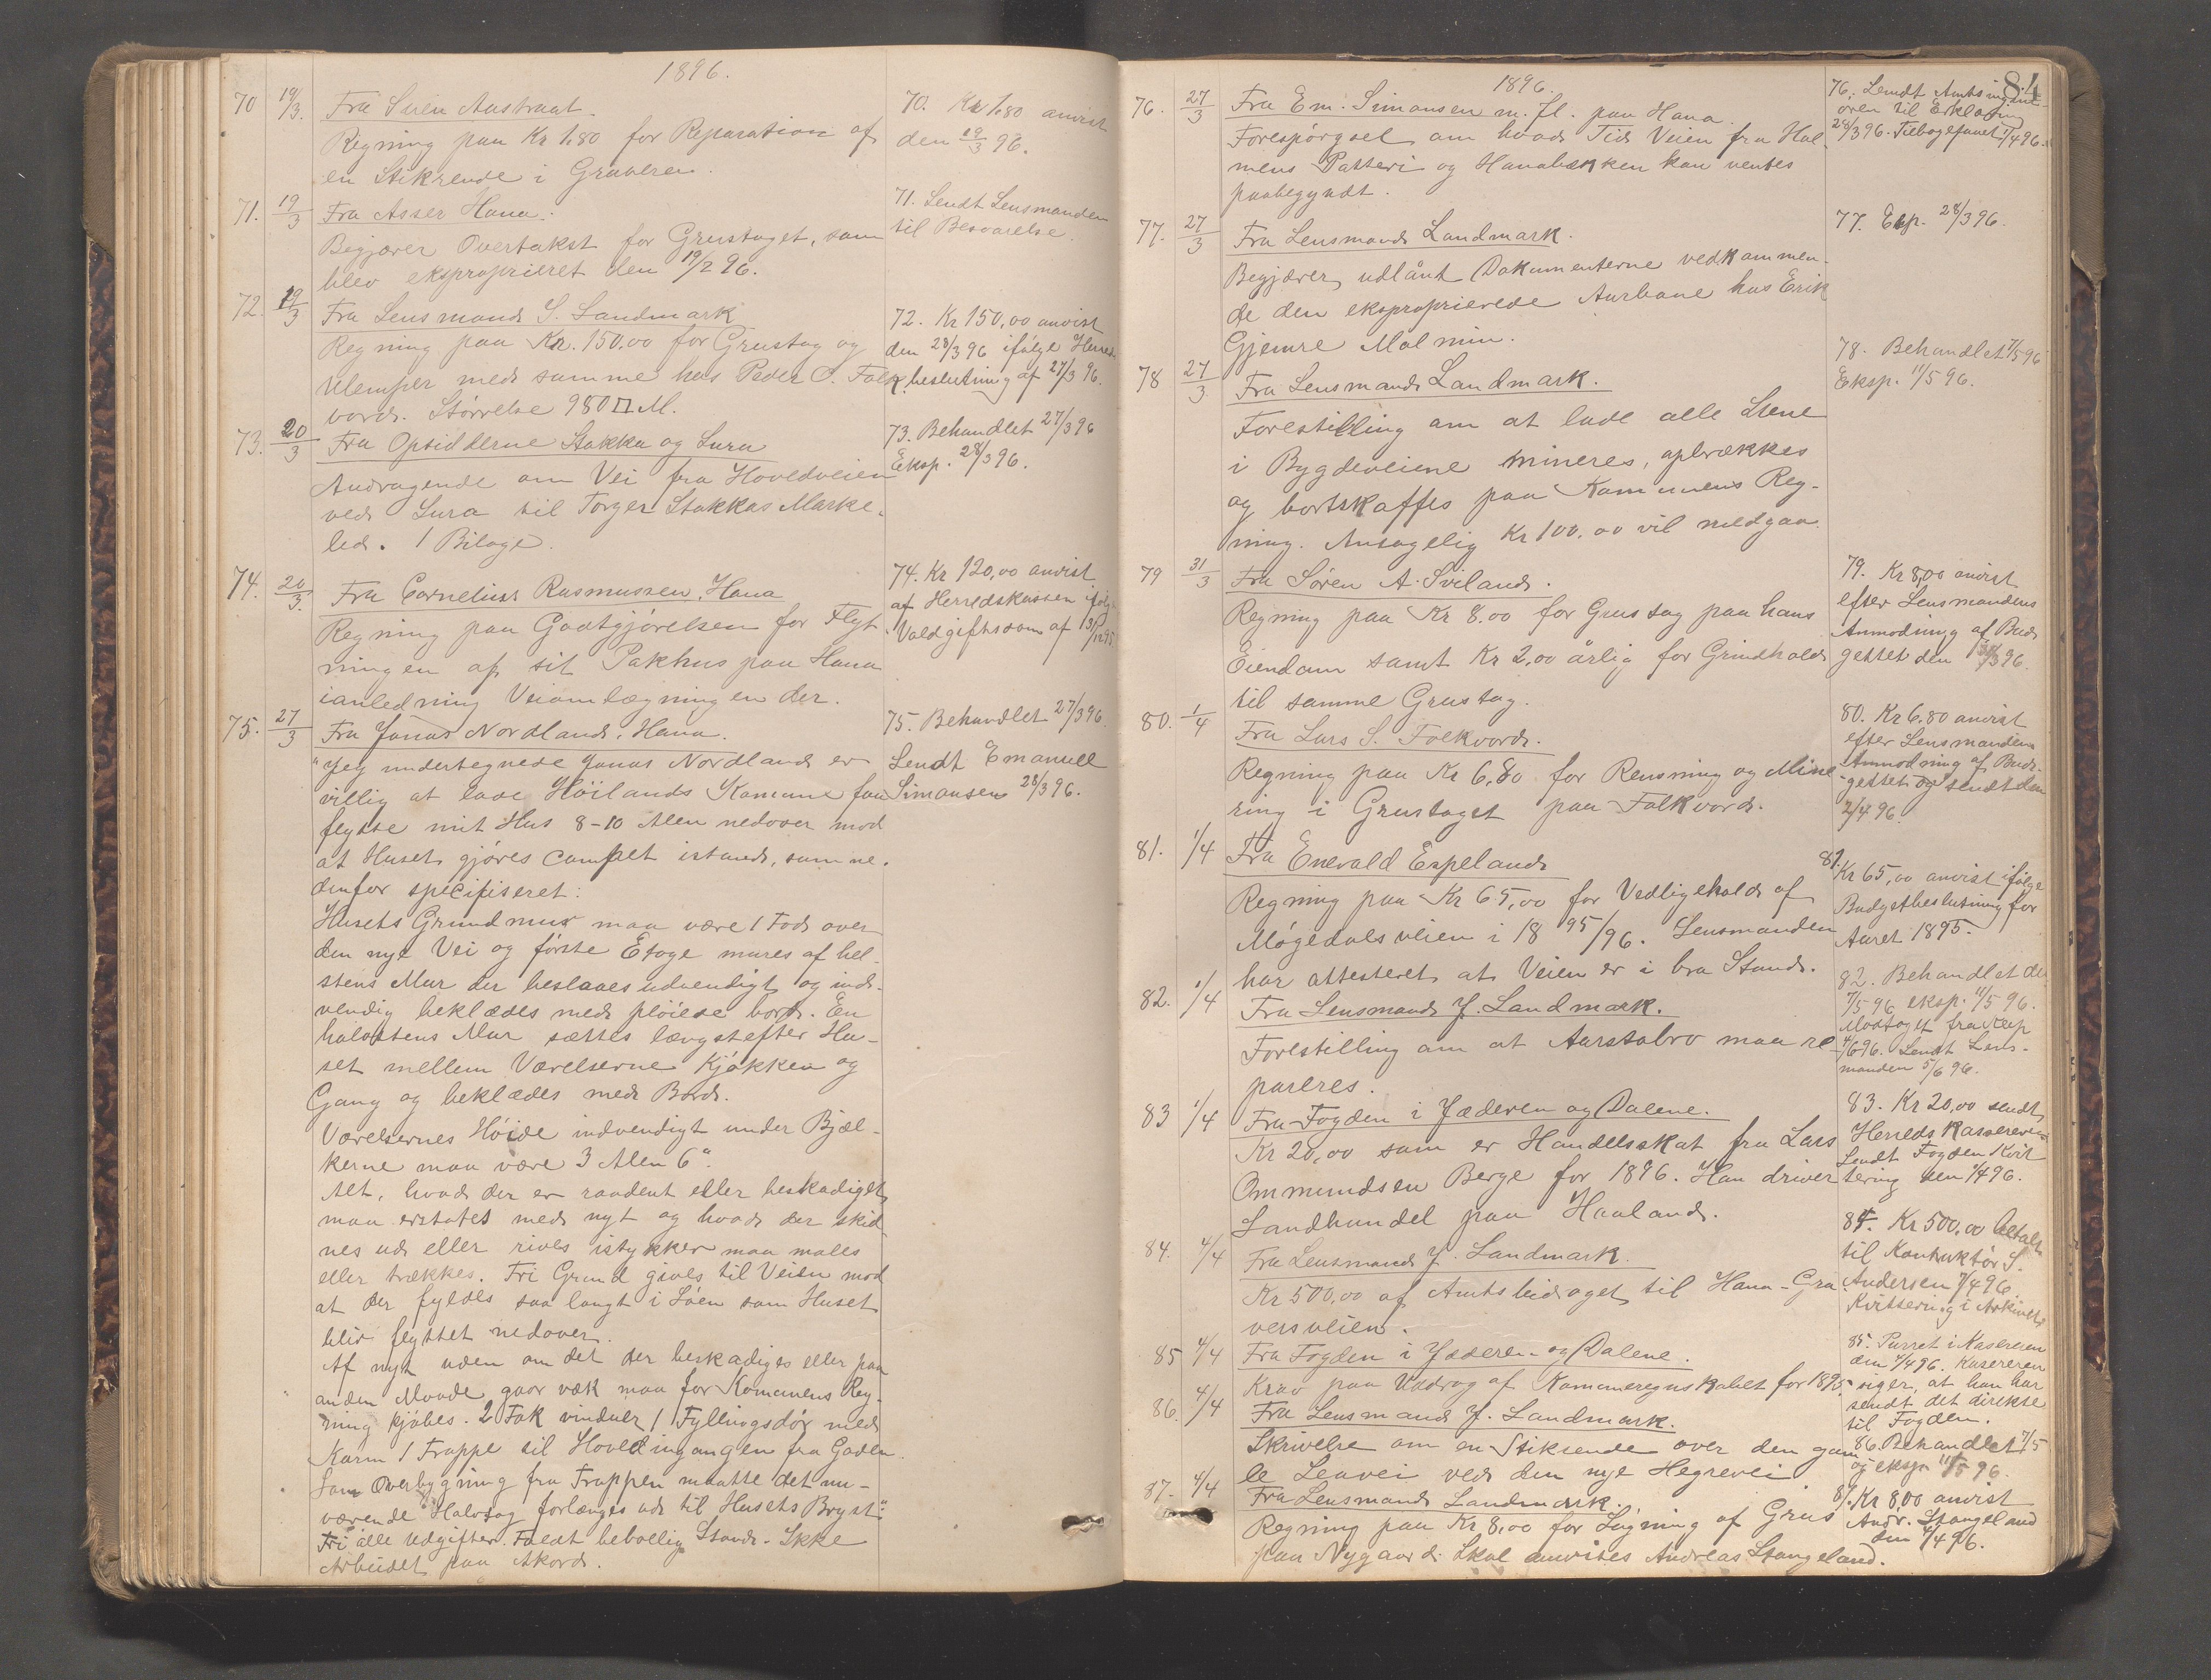 1896.
70 19/3. Fra Sören Austraat
Regning paa Kr 1.80 for Reparation af
en Stikrende i Graveren.
70. Kr 1.80 anvist
den 19/3 96.
71. 19/3 Fra Asser Hana.
Begjærer Overtakst for Grustaget, som
blev eksproprieret den 19/2 96.
71. Sendt Lensmanden
til Besvarelse.
72. 19/3 Fra Lensmand J. Landmark
Regning paa Kr. 150.00 for Grustag og
Ulemper med samme hos Peder O. Folk
vord. Störrelse 980 □ M.
72. Kr 150,00 anvist
den 28/3 96 ifölge Herreds
beslutning af 27/3 96.
73. 20/3 Fra Opsidderne Stokka og Lura
Andragende om Vei fra Hovedveien
ved Lura til Torger Stokkas Marke-
led. 1 Bilage.
73. Behandlet 27/3 96
Eksp. 28/3 96.
74. 20/3. Fra Cornelius Rasmussen, Hana
Regning paa Godtgjörelsen for Flyt
ningen af sit Pakhus paa Hana
ianledning Veiomlægningen der.
74. Kr 120,00 anvist
af Herredskassen ifölge
Voldgiftsdom af 13/12 95
75. 27/3 Fra Jonas Nordland, Hana.
"Jeg undertegnede Jonas Nordland er
villig at lade Höilands Komune faa
flytte mit Hus 8-10 Alen nedover mod
at Huset gjöres complet istand, som ne-
denfor specifiseret:
Husets Grundmur maa være 1 Fod over
den nye Vei og förste Etage mures af hel-
stens Mur der beslaaes udvendigt og ind-
vendig beklædes med plöiede bord. En
halvstens Mur sættes langsefter Hu-
set mellem Værelserne Kjökken og
Gang og beklædes med Bord.
Værelsernes Höide indvendigt under Bjæl-
kerne maa være 3 Alen 6".
Alt, hvad der er raadent eller beskadiget
maa erstates med nyt og hvad der skid
nes ud eller rives istykker maa males
eller trækkes. Fri Grund gives til Veien mod
at der fyldes saa langt i Söen som Huset
blir flyttet nedover.
Af nyt uden om det der beskadiges eller paa
anden Maade gaar væk maa for Komunens Reg-
ning kjöbes. 2 Fak vinduer 1 Fyllingsdör med
Karm 1 Trappe til Hovedingangen fra Gaden.
Som Overbygning fra Trappen maatte det nu-
værende Halvtag forlænges ud til Husets Bryst."
Fri alle Udgifter. Fuldt beboelig Stand. Ikke
Arbeidet paa Akord.
75. Behandlet 27/3 96.
Sendt Emanuel
Simonsen 28/3 96.
84
1896.
76. 27/3 Fra Em. Simonsen m. fl. paa Hana.
Forespörgsel om hvad Tid Veien fra Hol-
mens Batteri og Hanabækken kan ventes
paabegyndt.
76. Sendt Amtsingeni-
ören til Erklæring
28/3 96. Tilbagesendt 1/4 96.
77. 27/3 Fra Lensmand Landmark.
Begjærer udlånt Dokumenterne vedkommen-
de den eksproprierede Aurbane hos Erik
Gjemre Malmin.
77. Eksp. 28/3 96.
78 27/3 Fra Lensmand Landmark.
Forestilling om at lade alle Stene
i Bygdeveiene mineres, opbrækkes
og bortskaffes paa Komunens Reg-
ning. Antagelig Kr 100.00 vil medgaa.
78. Behandlet 7/5 96
Eksp. 11/5 96.
79 31/3 Fra Sören A. Sviland.
Regning paa Kr 8.00 for Grustag paa hans
Eiendom samt Kr 2,00 årlig for Grindhold
til samme Grustag.
79. Kr 8,00 anvist
efter Lensmandens
Anmodning af Bud
gettet den 31/3 96.
80. 1/4 Fra Lars S. Folkvord.
Regning paa Kr 6.80 for Rensning og Mine-
ring i Grustaget paa Folkvord.
80. Kr 6.80 anvist
efter Lensmandens
Anmodning af Bud-
gettet og sendt den
2/4 96.
81. 1/4 Fra Enevald Espeland
Regning paa Kr 65,00 for Vedligehold af
Mögedalsveien i 18 95/96. Lensmanden
har attesteret at Veien er i bra Stand.
81. Kr 65,00 anvist ifölge
Budgetbeslutning for
Aaret 1895.
82. 1/4 Fra Lensmand J. Landmark.
Forestilling om at Aarstabro maa re-
pareres.
82. Behandlet de
7/5 96 eksp. 11/5 96.
Modtaget fra
4/6 96. Sendt Lens-
manden 5/6 96.
83 1/4 Fra Fogden i Jæderen og Dalene.
Kr 20,00 som er Handelsskat fra Lars
Ommundsen Berge for 1896. Han driver
Landhandel paa Haaland.
83. Kr 20,00 sendt
Herredskassereren
Sendt Fogden Kvit
tering den 1/4 96.
84. 4/4 Fra Lensmand J. Landmark.
Kr 500,00 af Amtsbidraget til Hana-Gra-
versveien.
84. Kr 500.00 betalt
til Kontraktör S.
Andersen 7/4 96.
Kvittering i Arkivet
85 4/4 Fra Fogden i Jæderen og Dalene.
Krav paa Uddrag af Komuneregnskabet for 1895.
85. Purret i Kasereren
den 4/4 96. Kasereren
siger, at han har
sendt det direkte
til Fogden.
86. 4/4 Fra Lensmand J. Landmark.
Skrivelse om en Stikrende over den gam
le Leavei ved den nye Hegrevei
86. Behandlet 7/5
og eksp. 11/5 96.
87. 4/4 Fra Lensmand Landmark.
Regning paa Kr 8,00 for Lugning af Grus
paa Nygaard. Skal anvises Andreas Stangeland.
87. Kr 8,00 anvist
Andr. Stangeland
den 4/4 96.